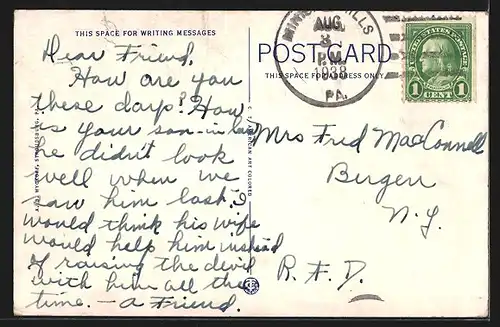 THIS SPACE FOR WRITING MESSAGES
POST CARD
THIS SPACE FOR ADDRESS ONLY
AUG
3
P.M.
1938
PA.
UNITED STATES POSTAGE
1 CENT 1
Dear Friend,
How are you
these days? How
is your son-in-law
he didn't look
well when we
saw him last. I
would think his wife
would help him instead
of raising the devil
with him all the
time. — a Friend.
Mrs Fred MacConnell
Bergen
N.Y.
R.F.D.